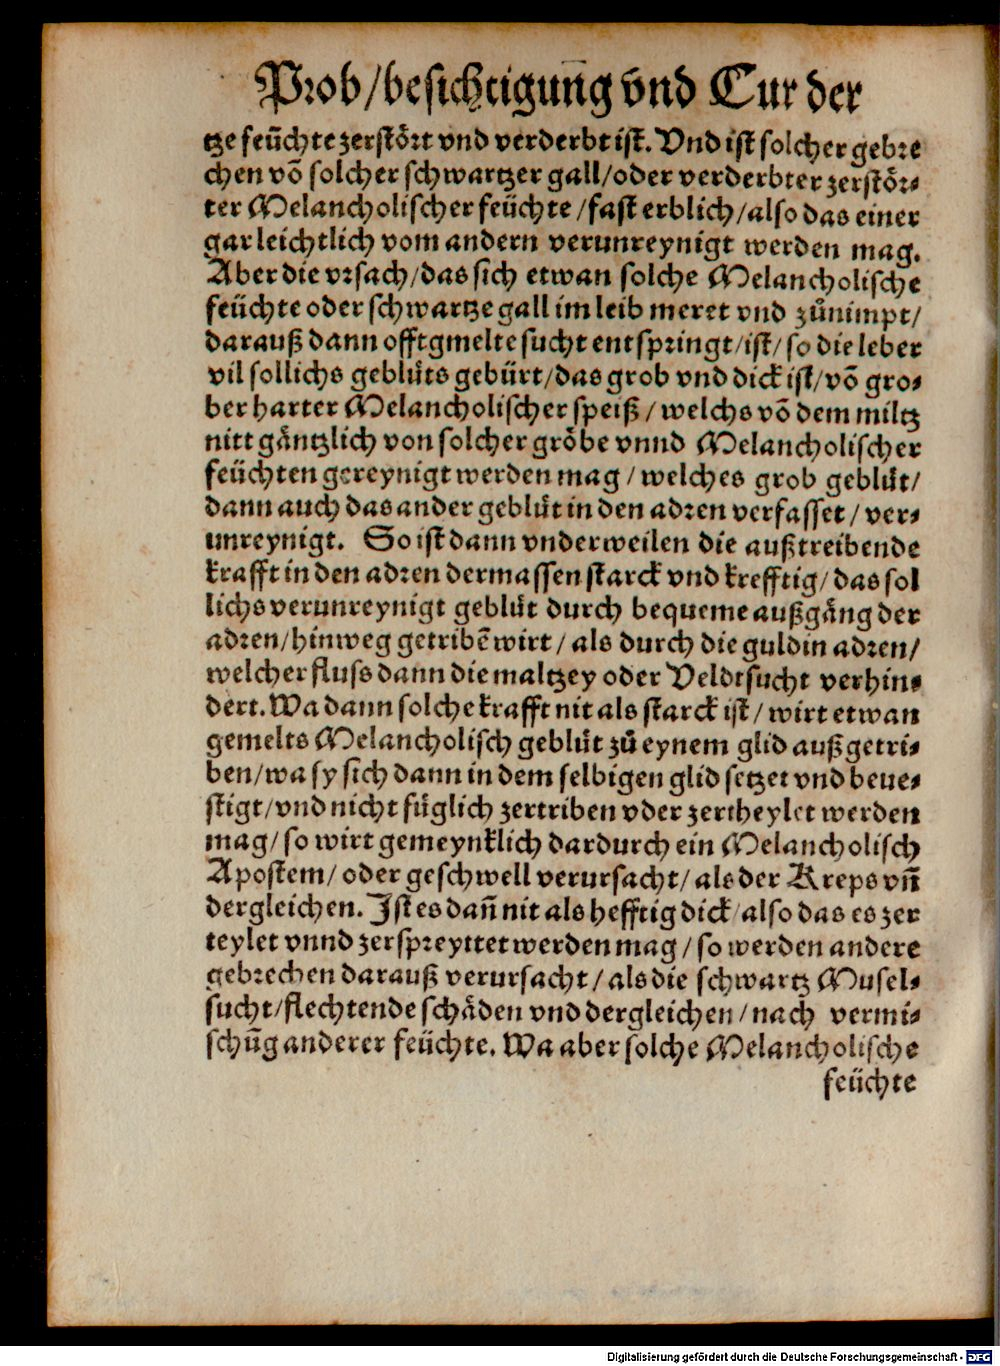 Prob/besichtigung vnd Cur der
tze feüchte zerstört vnd verderbt ist. Vnd ist solcher gebre
chen võ solcher schwartzer gall/oder verderbter zerstör⸗
ter Melancholischer feüchte/fast erblich/also das einer
gar leichtlich vom andern verunreynigt werden mag.
Aber die vrsach/das sich etwan solche Melancholische
feüchte oder schwartze gall im leib meret vnd zůnimpt/
darauß dann offtgmelte sucht entspringt/ist/so die leber
vil sollichs geblůts gebürt/das grob vnd dick ist/võ gro⸗
ber harter Melancholischer speiß/welchs võ dem miltz
nitt gäntzlich von solcher gröbe vnnd Melancholischer
feüchten gereynigt werden mag/welches grob geblůt/
dann auch das ander geblůt in den adren verfasset/ver⸗
unreynigt. So ist dann vnderweilen die außtreibende
krafft in den adren dermassen starck vnd krefftig/das sol
lichs verunreynigt geblůt durch bequeme außgäng der
adren/hinweg getribẽ wirt/als durch die guldin adren/
welcher fluss dann die maltzey oder Veldtsucht verhin⸗
dert. Wa dann solche krafft nit als starck ist/wirt etwan
gemelts Melancholisch geblůt zů eynem glid außgetri⸗
ben/wa sy sich dann in dem selbigen glid setzet vnd beue⸗
stigt/vnd nicht füglich zertriben vder zertheylet werden
mag/so wirt gemeynklich dardurch ein Melancholisch
Apostem/oder geschwell verursacht/als der Kreps vñ
dergleichen. Ist es dañ nit als hefftig dick/also das es zer
teylet vnnd zerspreyttet werden mag/so werden andere
gebrechen darauß verursacht/als die schwartz Musel⸗
sucht/flechtende schäden vnd dergleichen/nach vermi⸗
schũg anderer feüchte. Wa aber solche Melancholische
feüchte
Digitalisierung gefördert durch die Deutsche Forschungsgemeinschaft - DFG